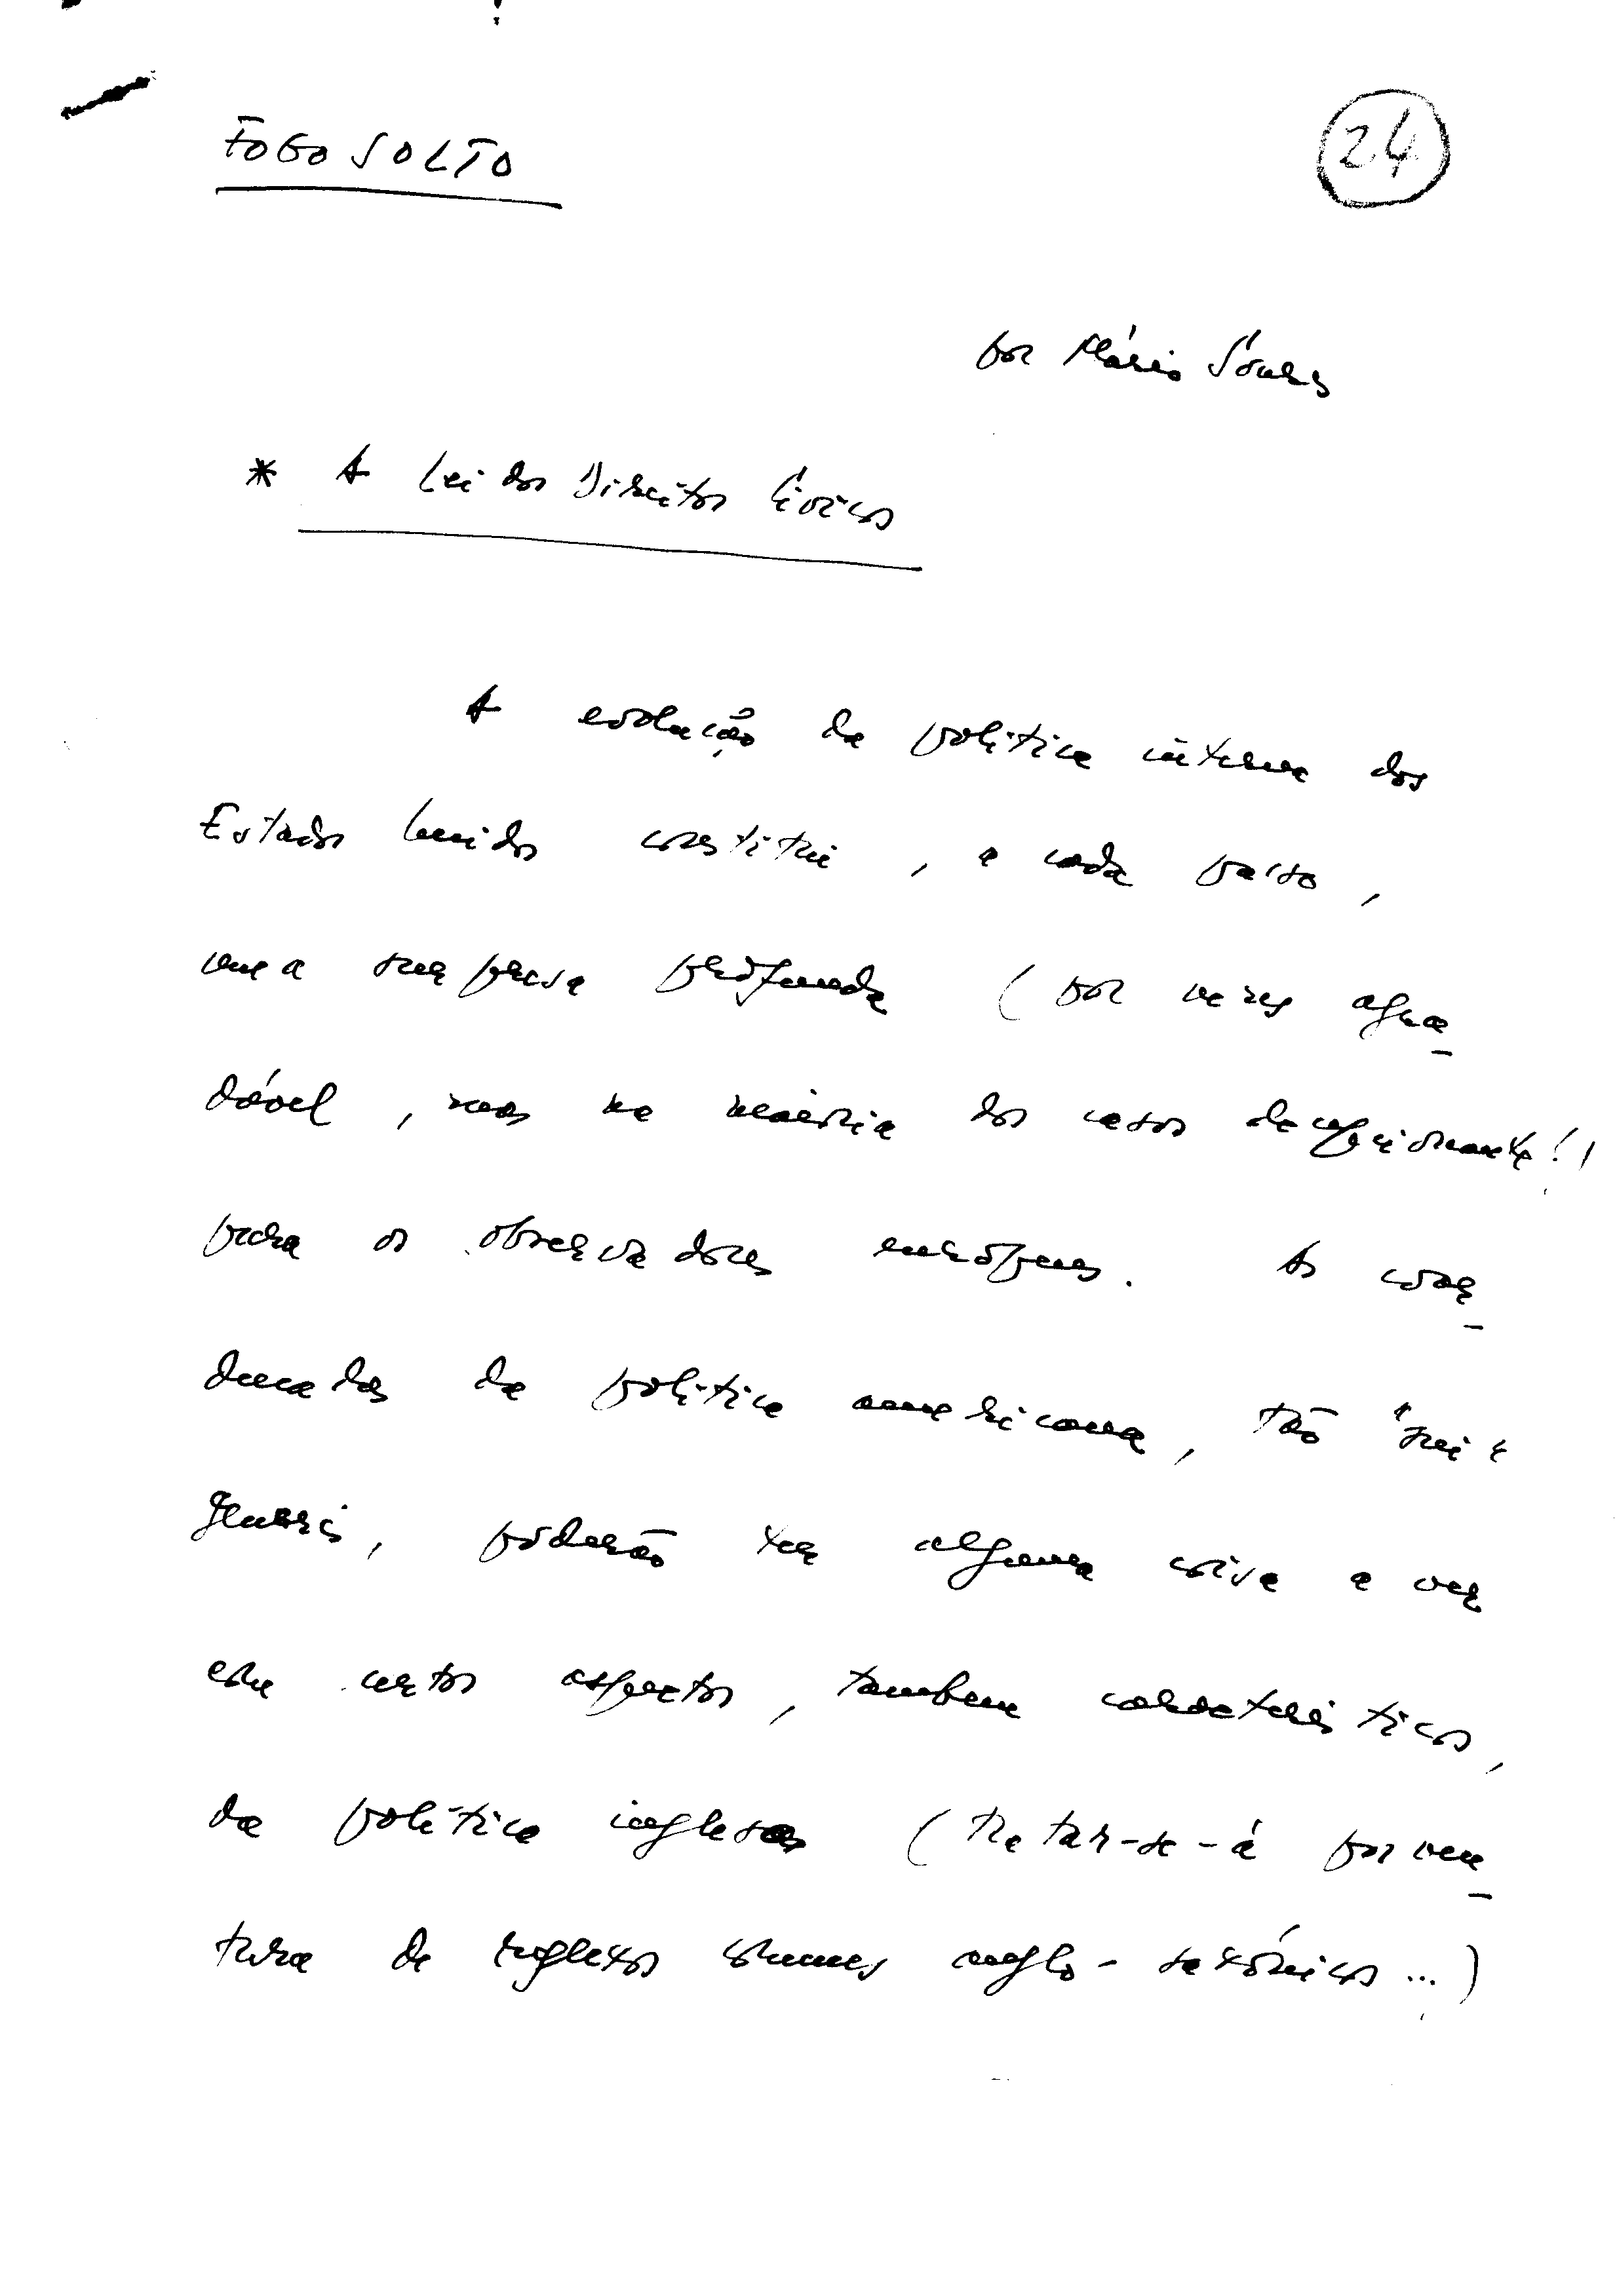 FOGO SOLTO
24
por Mário Soares
* A Lei dos Direitos Cívicos
A evolução da politica interna dos
Estados Unidos constitui, a cada passo,
uma surpresa profunda (por vezes agra-
dável, mas na maioria dos casos decepcionante!)
para os observadores europeus. As coor-
denadas da politica americana, tão "sui"
generis, poderão ter alguma coisa a ver
em certos aspectos, tambem caracteristicos,
da política inglesa (tratar-se-á porven-
tura de reflexos comuns anglo-saxónicos...)